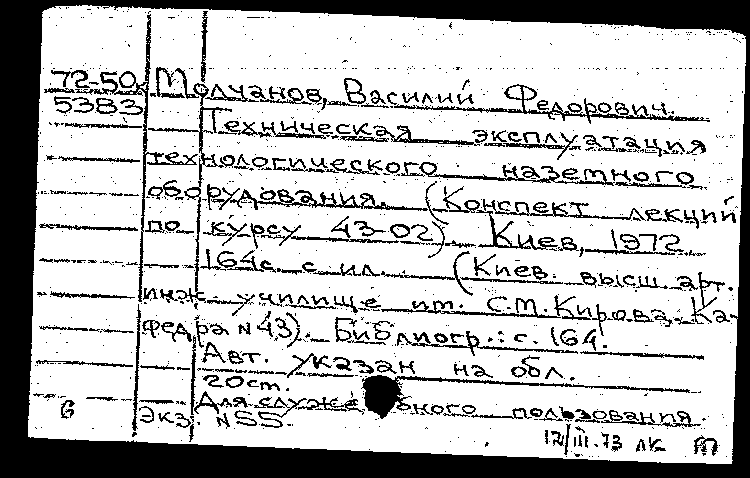 72-50к Молчанов, Василий Федорович.
5383 Техническая эксплуатация
технологического наземного
оборудования. (Конспект лекций
по курсу 43-02). Киев, 1972.
164с. с ил. (Киев. высш. арт.
инж. училище им. С.М.Кирова. Ка-
федра №43). Библиогр.: с. 164.
Авт. указан на обл.
20см.
Для служебного пользования.
б Экз. №55.
12/III.73 ЛК